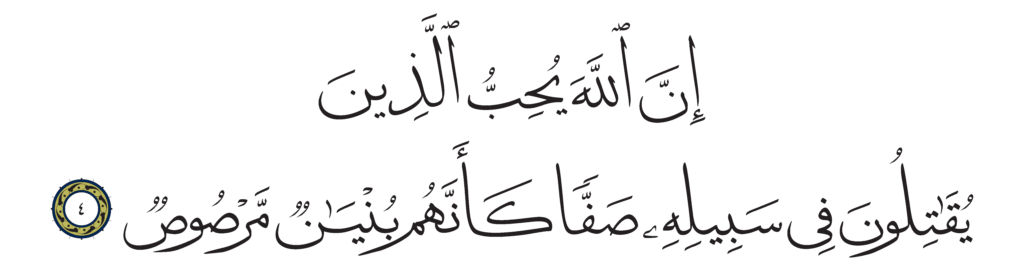 إِنَّ ٱللَّهَ يُحِبُّ ٱلَّذِينَ
يُقَـٰتِلُونَ فِى سَبِيلِهِۦ صَفًّا كَأَنَّهُم بُنْيَـٰنٌ مَّرْصُوصٌ ٤